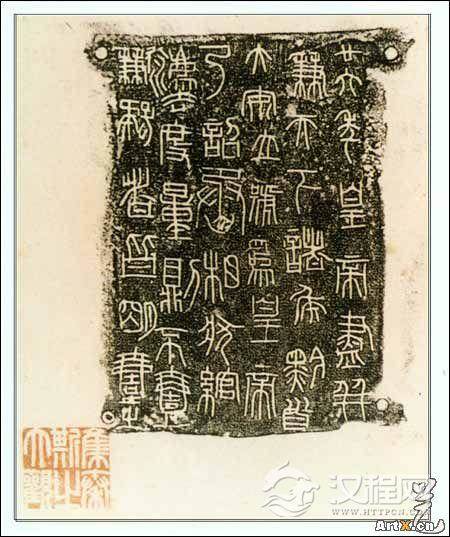 廿六年皇帝盡并
兼天下諸侯黔首
大安立號爲皇帝
乃詔丞相狀綰
灋度量則不壹
歉疑者皆明壹之
汉程网
HTTPCN.COM
ArtX.cn